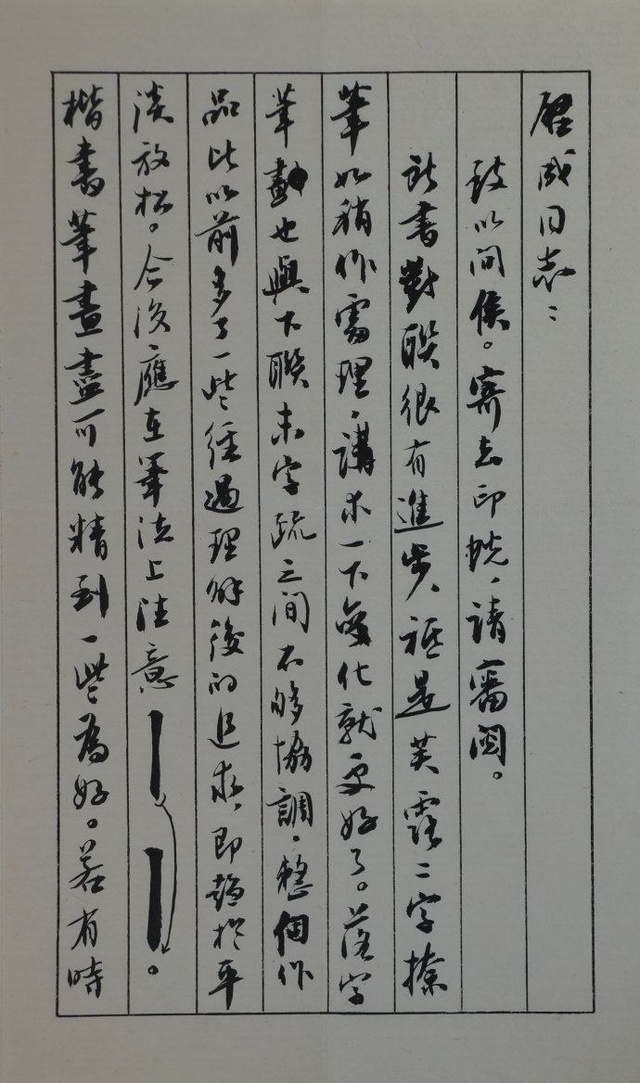 启成同志：
致以问候。寄去印蜕，请審阅。
新書對联很有進步，祗是芙露二字捺
筆如稍作處理，講求一下变化就更好了。落字
筆動也與下联末字疏之间不够協調。整個作
品比以前多了一些经過理解後的追求，即趋於平
淡放松。今後應在筆法上注意
楷書筆畫盡可能精到一些為好。若有時